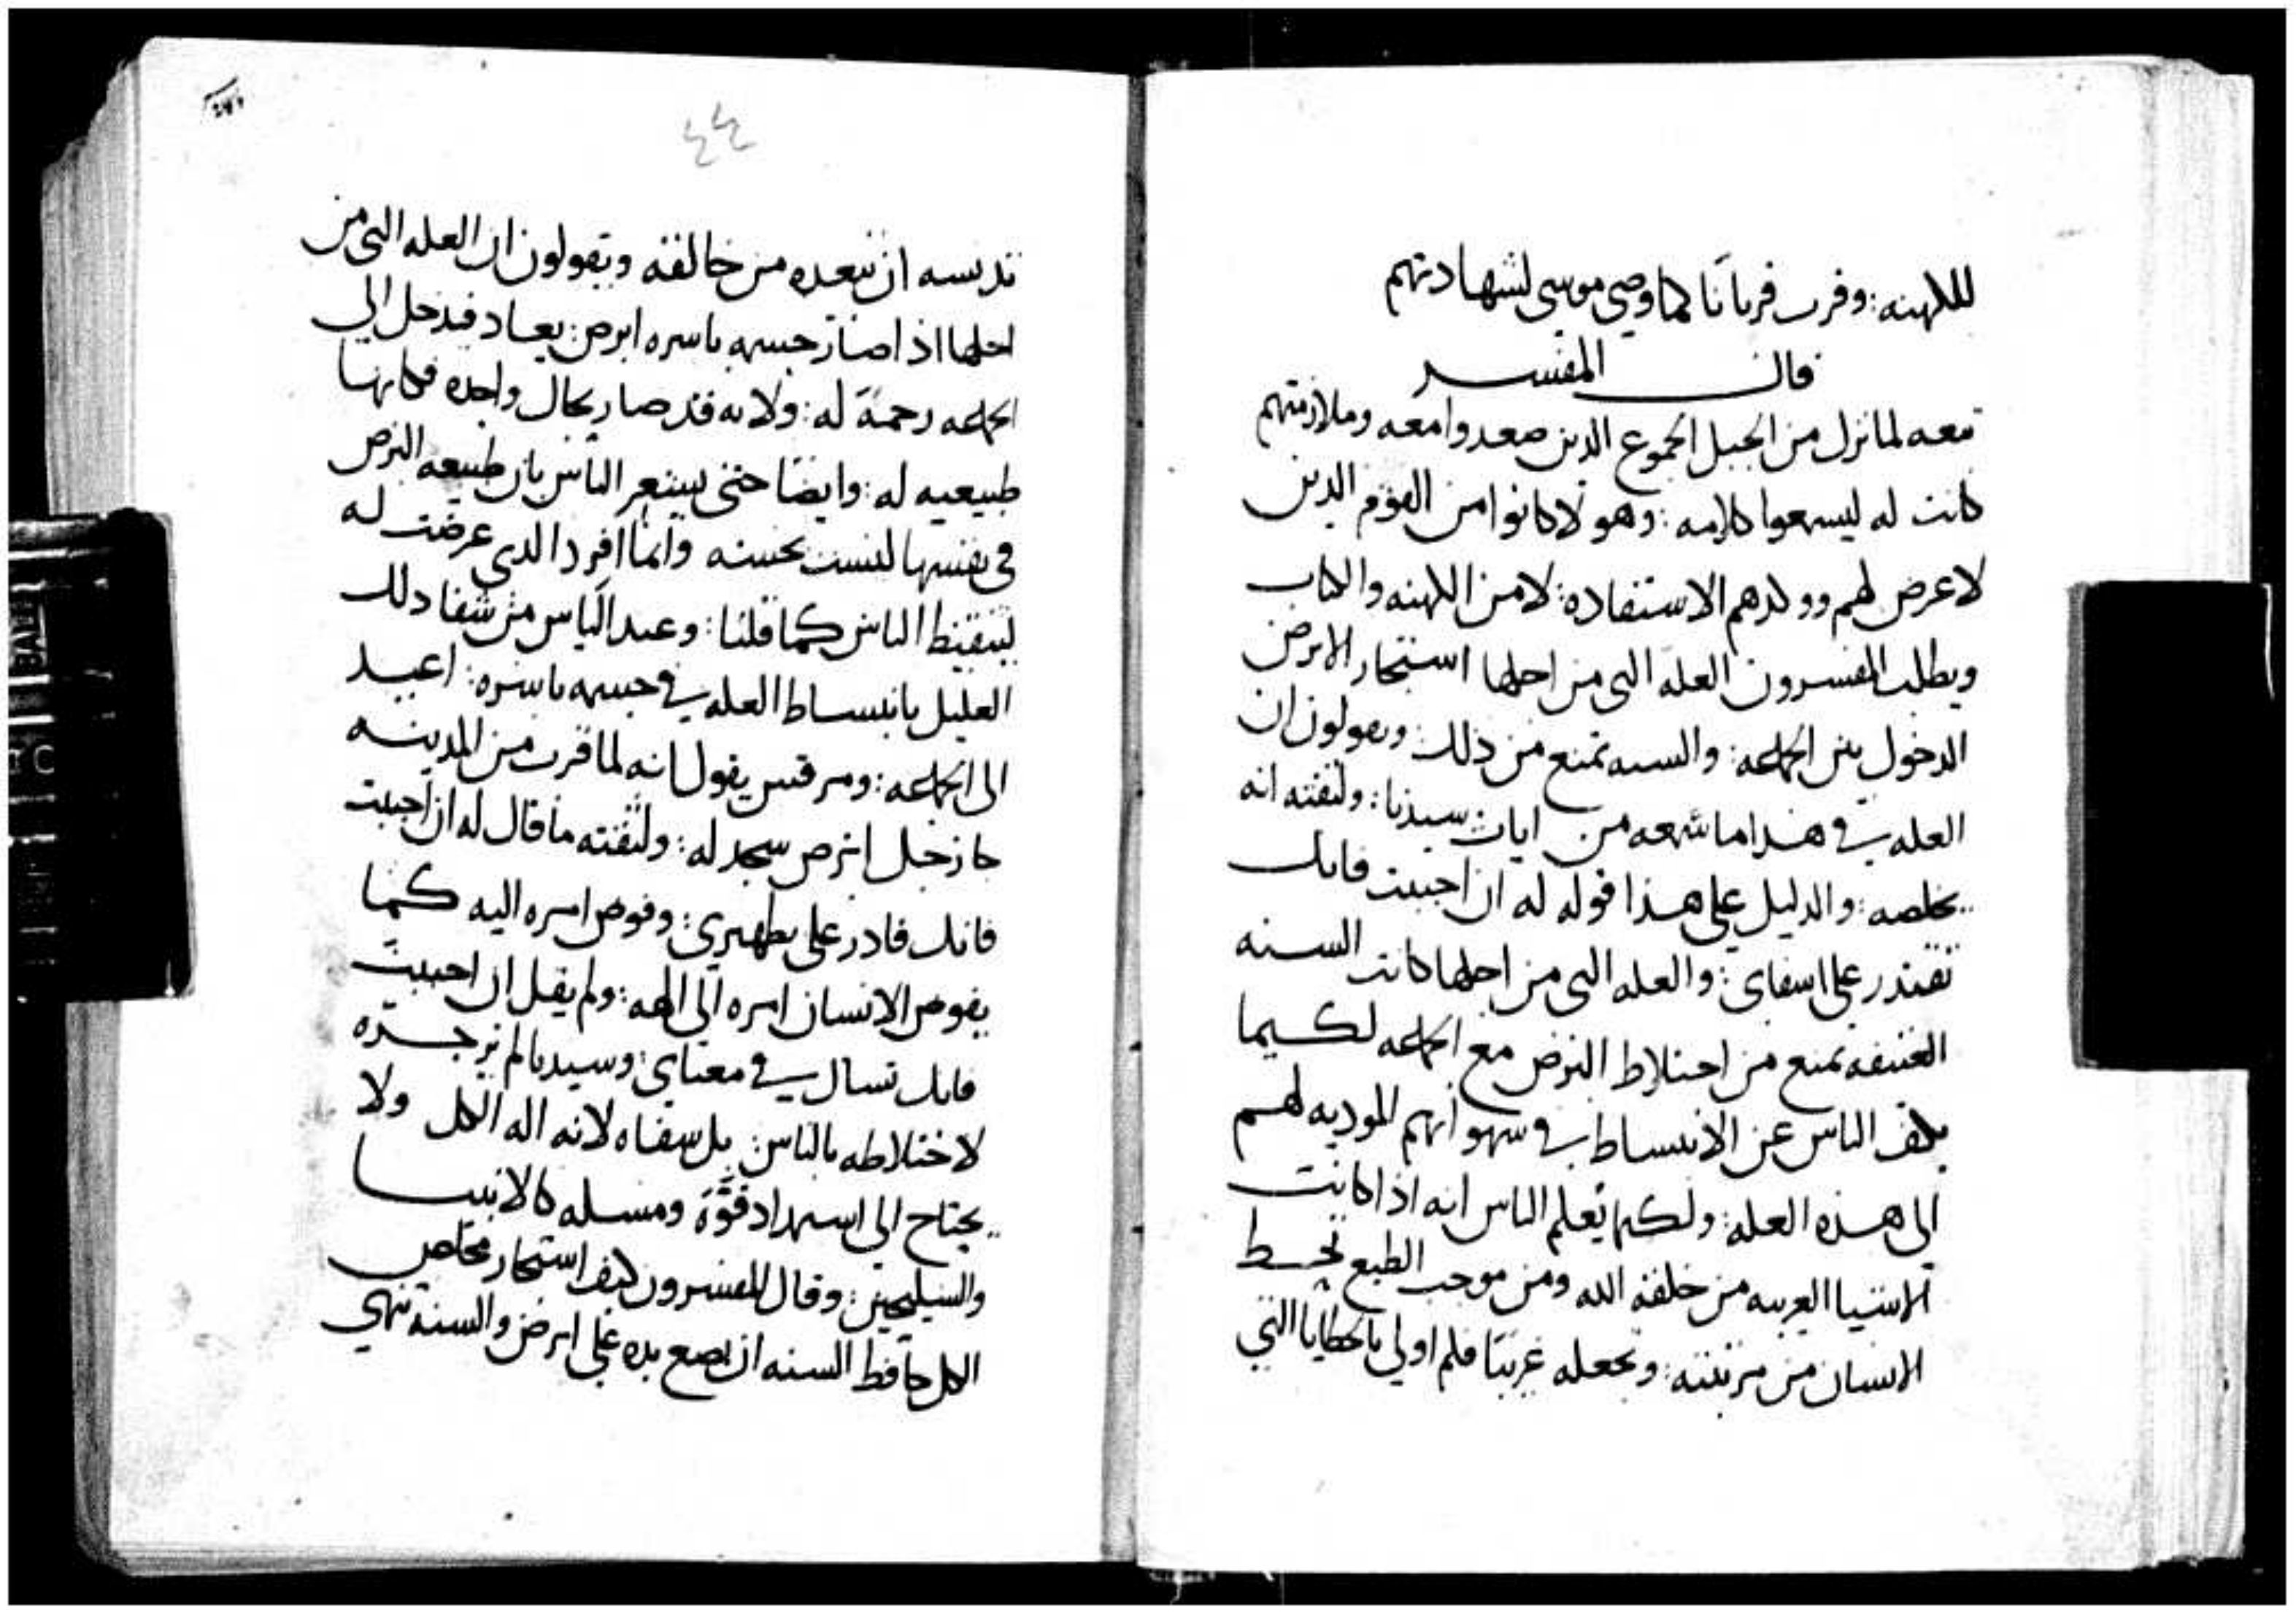 للكهنه: وقرب قربانا كما وصى موسى لشهادتهم
قال المفسر
تبعه لما نزل من الجبل الجموع الدين صعدوا معه وملازمتهم
كانت له ليسمعوا كلامه: وهولا كانوا من القوم الدين
لا عرض لهم ووكدهم الاستفاده: لا من الكهنه والكتاب
ويطلب المفسرون العله التى من اجلها استجار الابرص
الدخول بين الجماعه: والسنه تمنع من ذلك: ويقولون ان
العله في هذا ما سمعه من ايات سيدنا: ولثقته انه
يخلصه: والدليل على هذا قوله له ان احببت فانك
تقتدر على اشفاى: والعله التى من اجلها كانت السنه
العتيقه تمنع من اختلاط البرص مع الجماعه لكيما
يكف الناس عن الانبساط في شهواتهم الموديه لهم
الى هذه العله: ولكيما يعلم الناس انه اذا كانت
الاشيا الغريبه من خلقة الله ومن موجب الطبع تحط
الانسان من مرتبته: وتجعله غريبا فكم اولى بالخطايا التي
٤٤
تدنسه ان تبعده من خالقه ويقولون ان العله التى من
اجلها اذا صار جسمه باسره ابرص: يعاد فيدخل الى
الجماعه رحمة له: ولانه قد صار بحال واحده فكانها
طبيعيه له: وايضا حتى يشعر الناس بان طبيعه البرص
في نفسها ليست نجسه وانما افرد الدي عرضت له
ليتيقظ الناس كما قلنا: وعند الياس من شفا دلك
العليل بانبساط العله في جسمه باسره: اعيد
الى الجماعه: ومرقس يقول انه لما قرب من المدينه
جا رجل ابرص سجد له: ولثقته ما قال له ان احببت
فانك قادر على تطهيري: وفوض امره اليه كما
يفوض الانسان امره الى الهه: ولم يقل ان احببت
فانك تسال في معناي: وسيدنا لم يزجره
لاختلاطه بالناس: بل شفاه لانه اله الكل ولا
يحتاج الى استمداد قوة ومسله كالانبيا
والسليحين: وقال المفسرون كيف استجار مخلص
الكل حافظ السنه ان يضع يده على ابرص والسنة تنهي